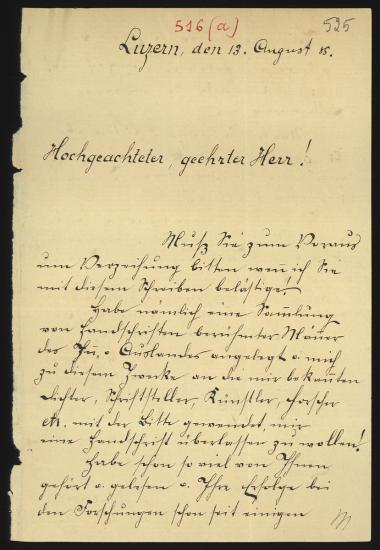 516 (a)
525
Luzern, den 13. August 15.
Hochgeachteter, geehrter Herr!
Muß Sie zum Voraus
um Verzeihung bitten wenn ich Sie
mit diesem Schreiben belästige!
Habe nämlich eine Sammlung
von Handschriften berühmter Männer
des In- u. Auslandes angelegt u. mich
zu diesem Zwecke an die mir bekannten
Dichter, Schriftsteller, Künstler, Forscher
etc. mit der Bitte gewendet, mir
eine Handschrift überlassen zu wollen!
Habe schon so viel von Ihnen
gehört u. gelesen u. Ihre Erfolge bei
den Forschungen schon seit einigen